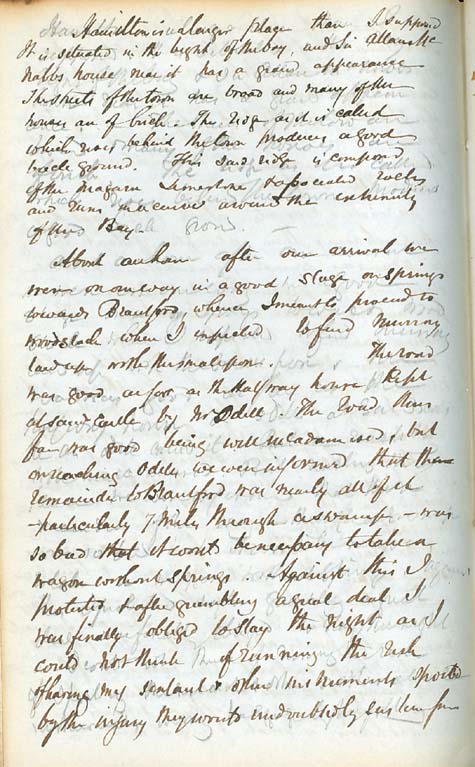 Hamilton is a larger place than I supposed
It is situated in the bight of the bay, and Sir Allan Mc
Nabbs house near it has a grand appearance
The streets of the town are broad and many of the
houses are of brick. The ridge as it is called
which rises behind the town produces a good
back ground. This said ridge is composed
of the Niagara Limestone & associated rocks
and runs in a curve around the extremity
of the Bay
About an hour after our arrival we
were on our way in a good Stage on springs
towards Brantford, whence I meant to proceed to
Woodstock where I expected to find Murray
laid up with rheumatism. The road
was good as far as the Halfway house kept
by Mr Odell. The road thus
far was good being well macadamised, but
on reaching Odells we were informed that the
remainder to Brantford was nearly all
- particularly 7 miles through a swamp - was
so bad that it would be necessary to take a
wagon without springs. Against this I
protested & after grumbling a great deal I
was finally obliged to stay the night as I
could not think of running the risk
of having my sextant & other instruments spoiled
by the injury they would undoubtedly